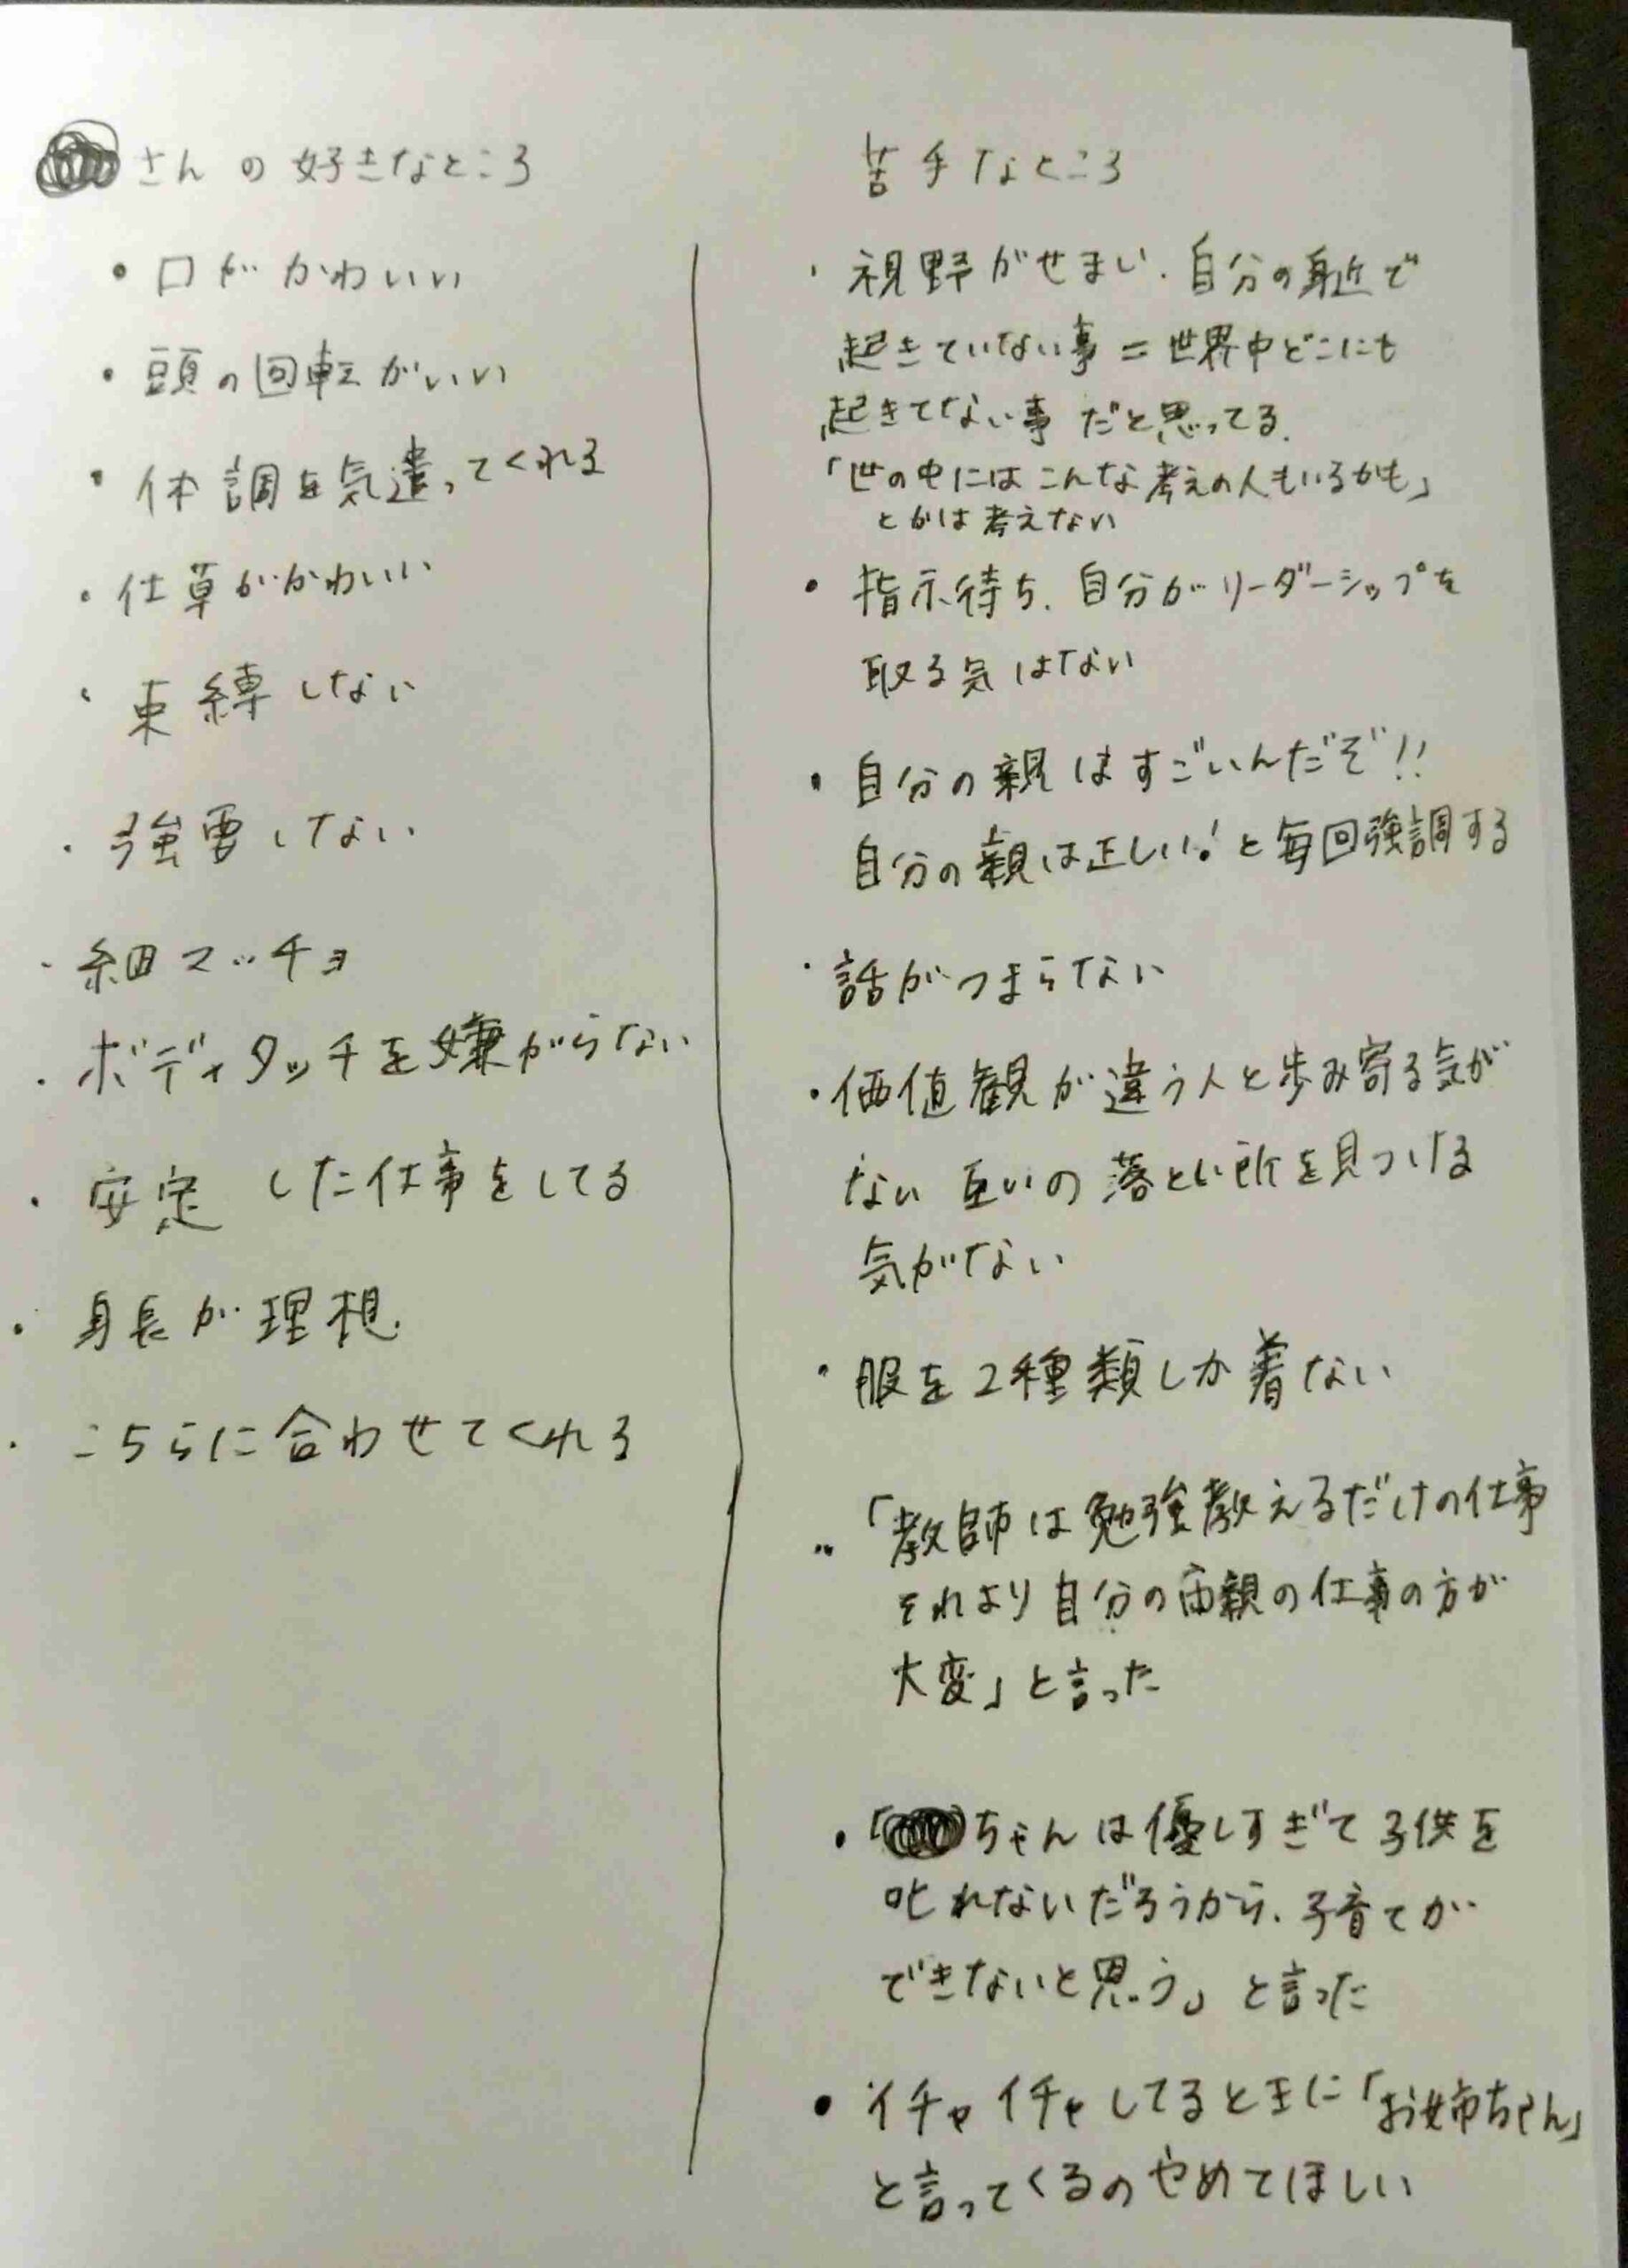 さんの好きなところ
・口がかわいい
・頭の回転がいい
・体調を気遣ってくれる
・仕草がかわいい
・束縛しない
・強要しない
・細マッチョ
・ボディタッチを嫌がらない
・安定した仕事をしてる
・身長が理想
・こちらに合わせてくれる
苦手なところ
・視野がせまい.自分の身近で
起きていない事=世界中どこにも
起きてない事だと思ってる.
「世の中にはこんな考えの人もいるかも」
とかは考えない
・指示待ち.自分がリーダーシップを
取る気はない
・自分の親はすごいんだぞ!!
自分の親は正しい!と毎回強調する
・話がつまらない
・価値観が違う人と歩み寄る気が
ない 互いの落とし所を見つける
気がない
・服を2種類しか着ない
・「教師は勉強教えるだけの仕事
それより自分の両親の仕事の方が
大変」と言った
・「ちゃんは優しすぎて子供を
叱れないだろうから.子育てが
できないと思う」と言った
・イチャイチャしてるときに「お姉ちゃん」
と言ってくるのやめてほしい